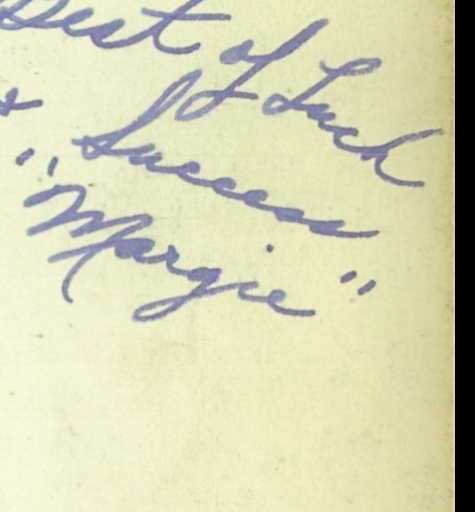 Best of Luck
& Success
"Margie"